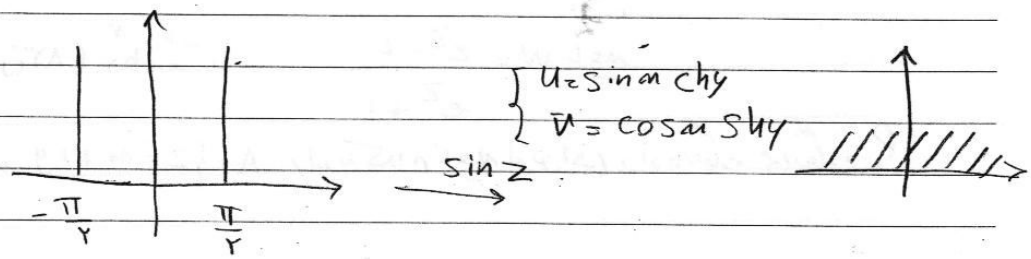 u = sin x chy
v = cos x shy
sin z
-π/۲ π/۲